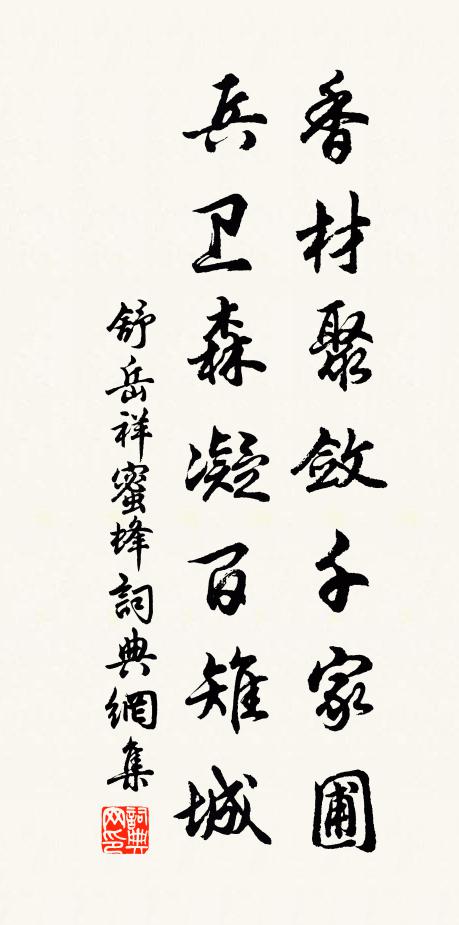 香材聚敛千家圃
兵卫森凝百雉城
舒岳祥蜜蜂詞典網集
詞典网印